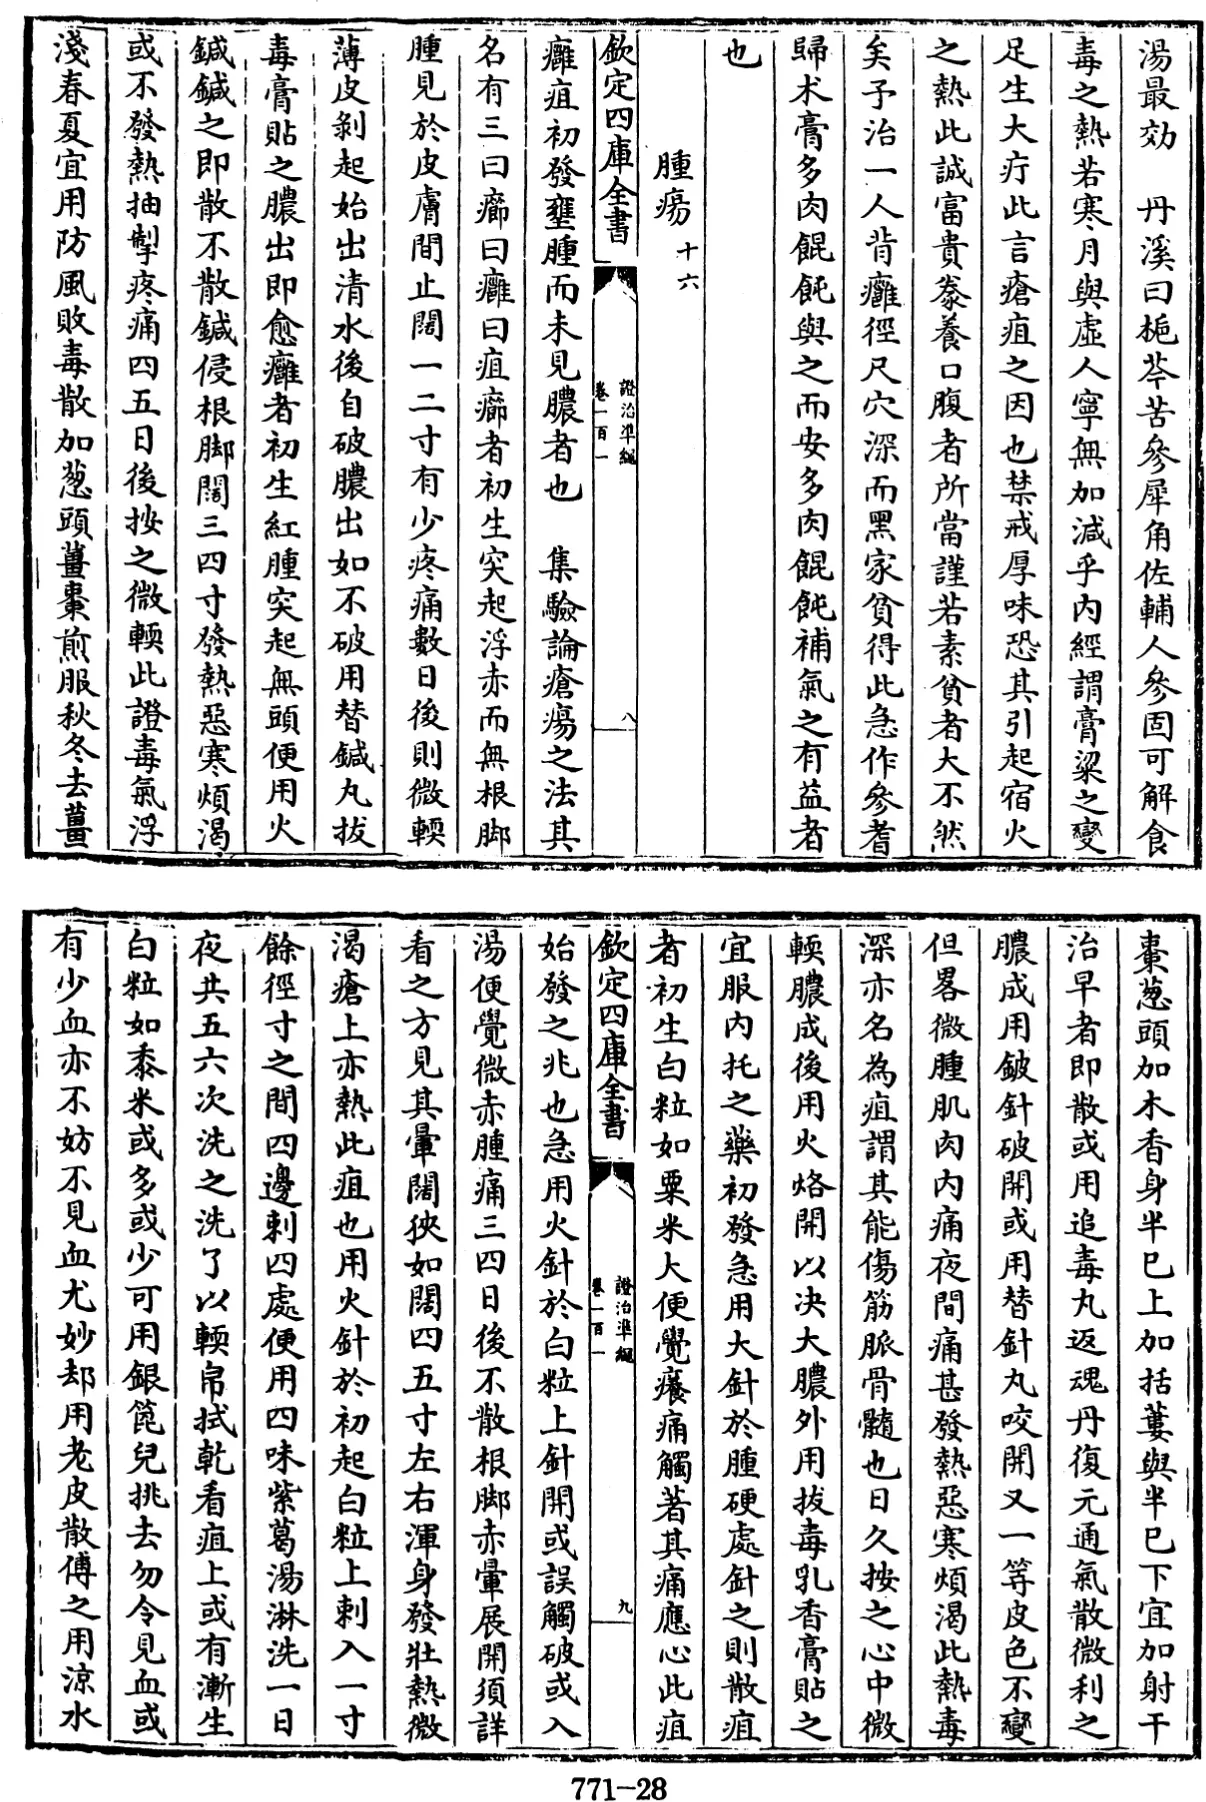 湯最効　丹溪曰梔芩苦參犀角佐輔人參固可解食
毒之熱若寒月與虛人寧無加減乎内經謂膏粱之變
足生大疔此言瘡疽之因也禁戒厚味恐其引起宿火
之熱此誠富貴豢養口腹者所當謹若素貧者大不然
矣予治一人背癰徑尺穴深而黑家貧得此急作參耆
歸术膏多肉餛飩與之而安多肉餛飩補氣之有益者
也
腫瘍十六
欽定四庫全書
證治準繩
卷一百一
八
癰疽初發壅腫而未見膿者也　集驗論瘡瘍之法其
名有三曰癤曰癰曰疽癤者初生突起浮赤而無根脚
腫見於皮膚間止闊一二寸有少疼痛數日後則微輭
薄皮剝起始出清水後自破膿出如不破用替鍼丸拔
毒膏貼之膿出即愈癰者初生紅腫突起無頭便用火
鍼鍼之即散不散鍼侵根脚闊三四寸發熱惡寒煩渴
或不發熱抽掣疼痛四五日後按之微輭此證毒氣浮
淺春夏宜用防風敗毒散加葱頭薑棗煎服秋冬去薑
棗葱頭加木香身半巳上加括蔞與半巳下宜加射干
治早者即散或用追毒丸返魂丹復元通氣散微利之
膿成用鈹針破開或用替針丸咬開又一等皮色不變
但畧微腫肌肉内痛夜間痛甚發熱惡寒煩渴此熱毒
深亦名為疽謂其能傷筋脈骨髓也日久按之心中微
輭膿成後用火烙開以决大膿外用拔毒乳香膏貼之
宜服内托之藥初發急用大針於腫硬處針之則散疽
者初生白粒如粟米大便覺癢痛觸著其痛應心此疽
欽定四庫全書
證治準繩
卷一百一
九
始發之兆也急用火針於白粒上針開或誤觸破或入
湯便覺微赤腫痛三四日後不散根脚赤暈展開須詳
看之方見其暈闊狹如闊四五寸左右渾身發壯熱微
渴瘡上亦熱此疽也用火針於初起白粒上刺入一寸
餘徑寸之間四邊刺四處便用四味紫葛湯淋洗一日
夜共五六次洗之洗了以輭帛拭乾看疽上或有漸生
白粒如黍米或多或少可用銀篦兒挑去勿令見血或
有少血亦不妨不見血尤妙却用老皮散傅之用涼水
771-28